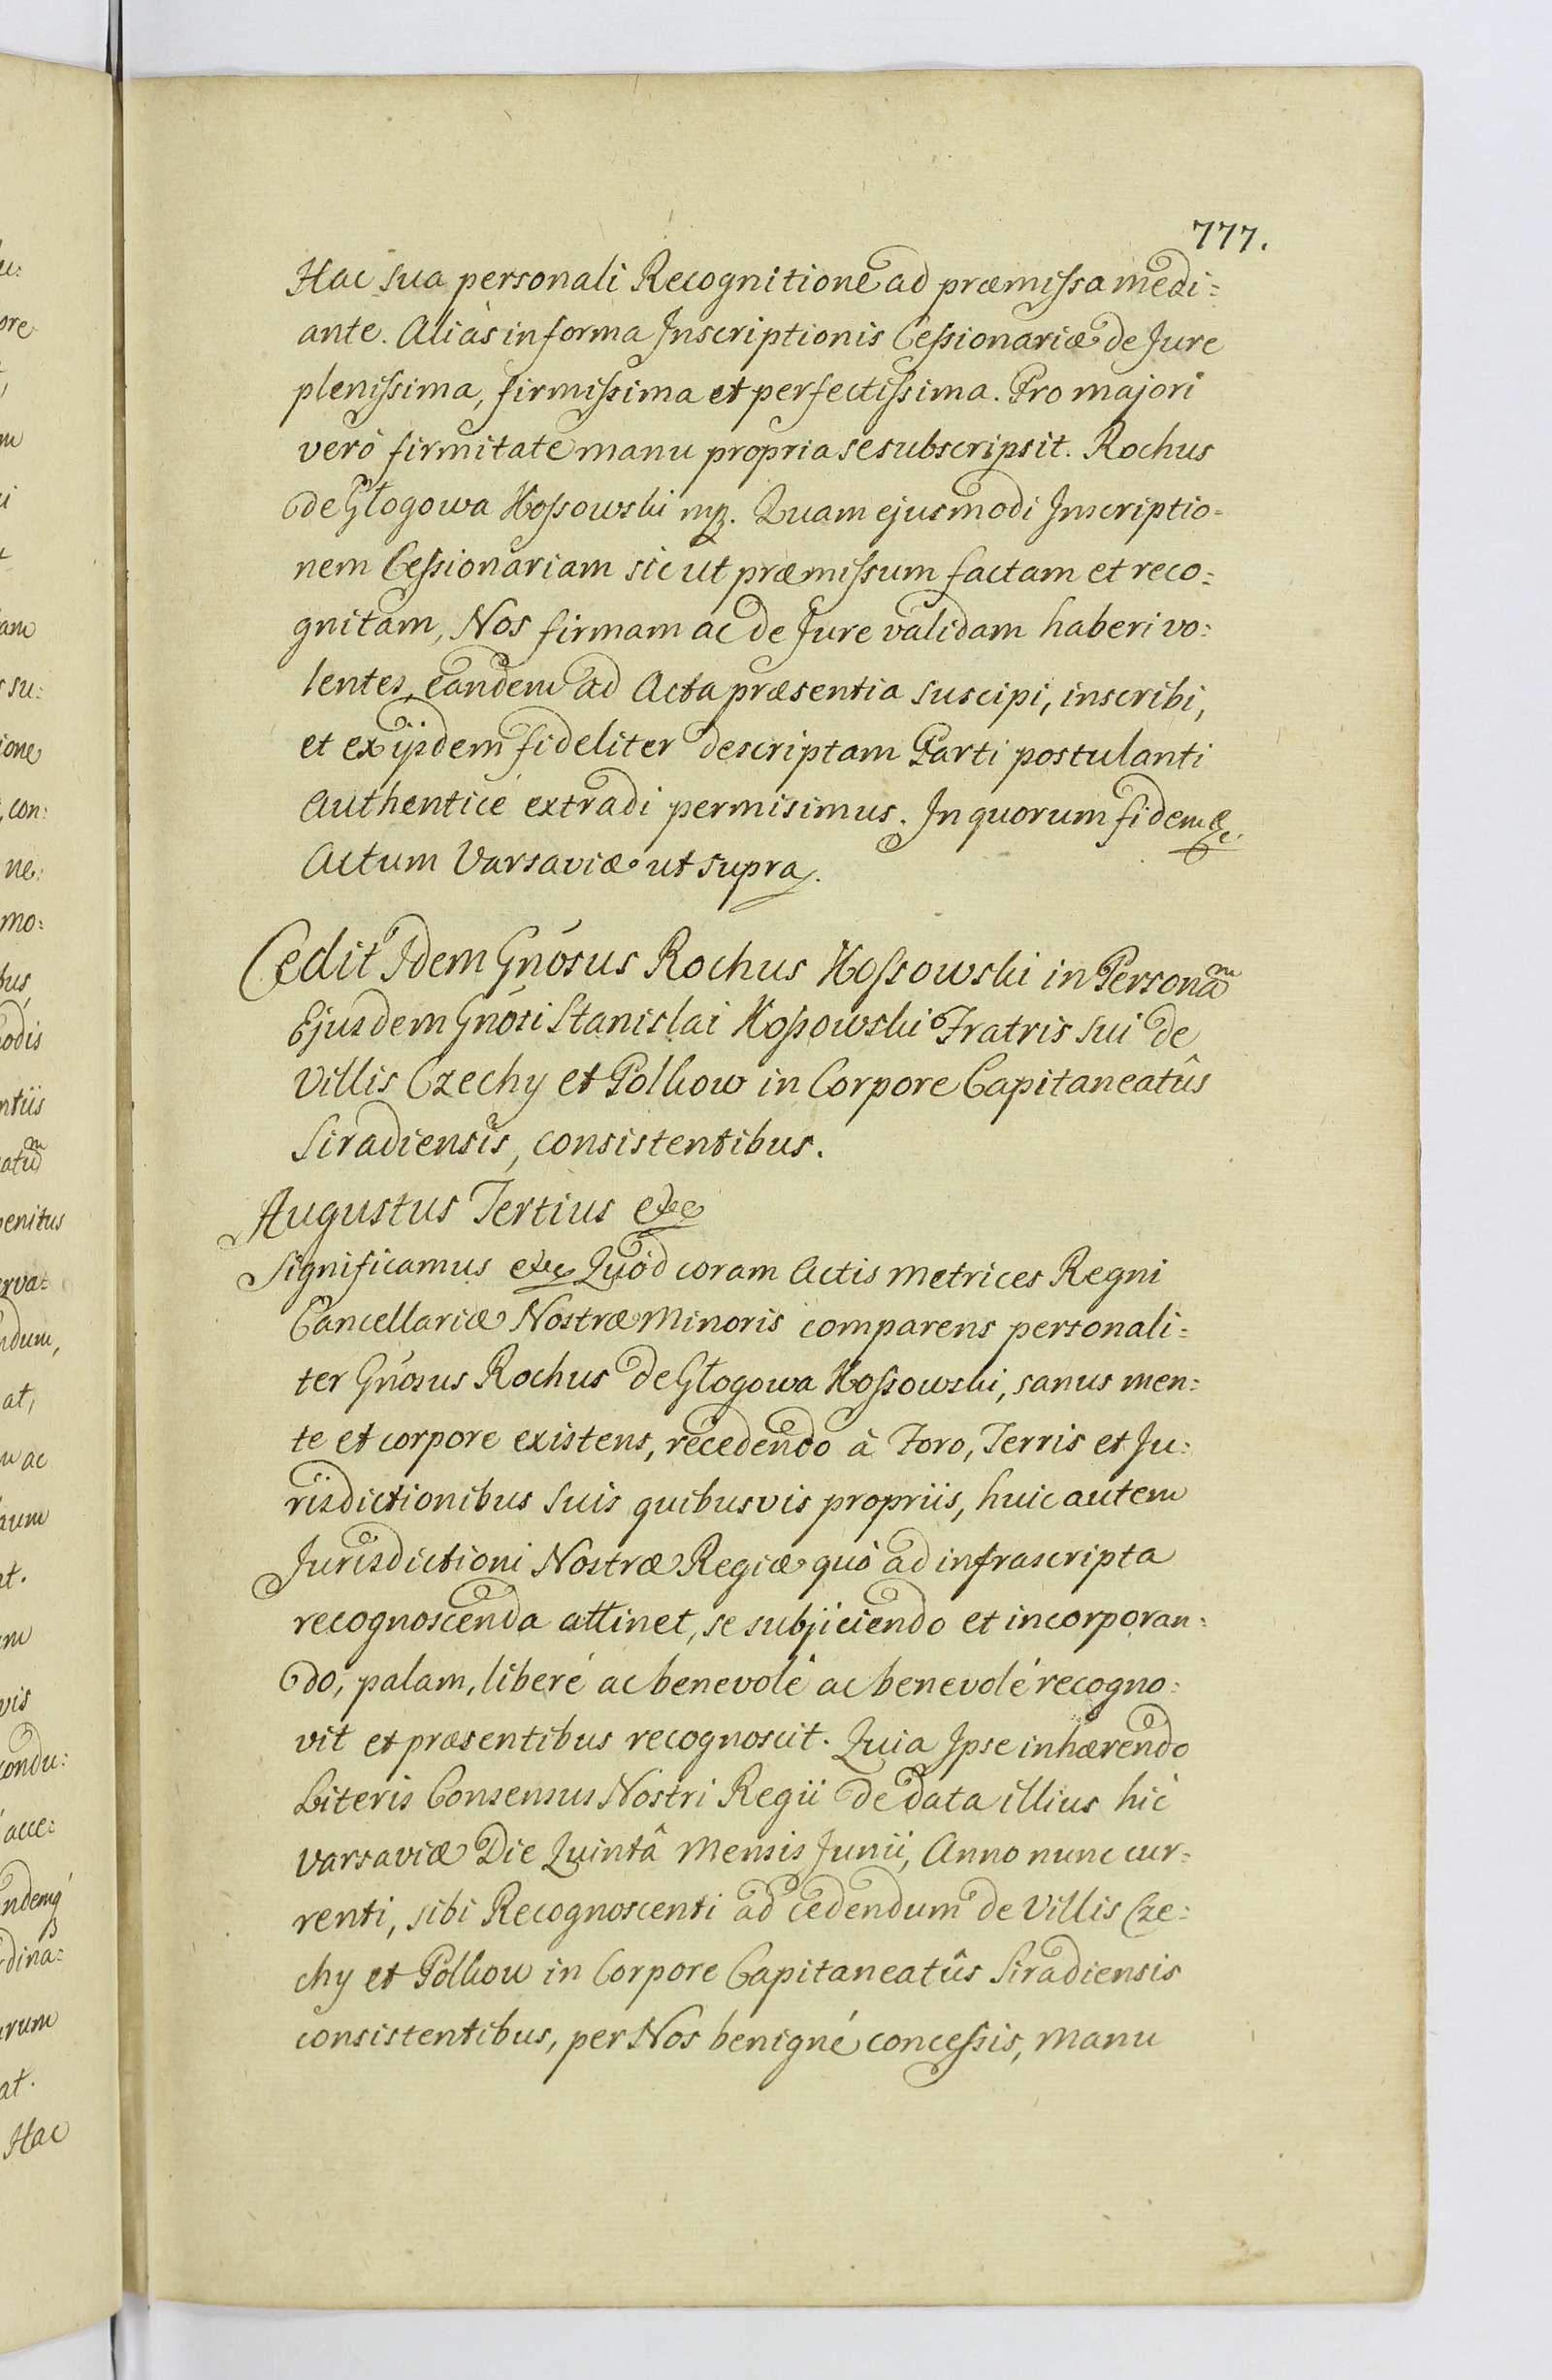 777.
Hac sua personali Recognitione ad præmissa medi=
ante. Aliàs in forma Inscriptionis Cessionariæ de Jure
plenissima, firmissima et perfectissima. Pro majori
verò firmitate manu propria se subscripsit. Rochus
de Głogowa Kossowski mp. Quam ejusmodi Inscriptio=
nem Cessionariam sic ut præmissum factam et reco=
gnitam, Nos firmam ac de Jure validam haberi vo=
lentes, eandem ad Acta præsentia suscipi, inscribi,
et ex ijsdem fideliter descriptam Parti postulanti
Authenticè extradi permisimus. In quorum fidem &c.
Actum Varsaviæ ut supra.
Cedit Idem Gnosus Rochus Kossowski in Personam
Ejusdem Gnosi Stanislai Kossowski Fratris sui de
Villis Czechy et Polkow in Corpore Capitaneatûs
Siradiensis, consistentibus.
Augustus Tertius etc
Significamus etc Quòd coram Actis Metrices Regni
Cancellariæ Nostræ Minoris comparens personali=
ter Gnosus Rochus de Głogowa Kossowski, sanus men=
te et corpore existens, recedendo à Foro, Terris et Ju=
risdictionibus suis quibusvis propriis, huic autem
Jurisdictioni Nostræ Regiæ quò ad infrascripta
recognoscenda attinet, se subjiciendo et incorporan=
do, palam, liberé ac benevolé ac benevolé recogno=
vit et præsentibus recognoscit. Quia Ipse inhærendo
Literis Consensus Nostri Regii de data illius hìc
Varsaviæ Die Quintâ Mensis Junii, Anno nunc cur=
renti, sibi Recognoscenti ad cedendum de Villis Cze=
chy et Polkow in Corpore Capitaneatûs Siradiensis
consistentibus, per Nos benigné concessis, manu